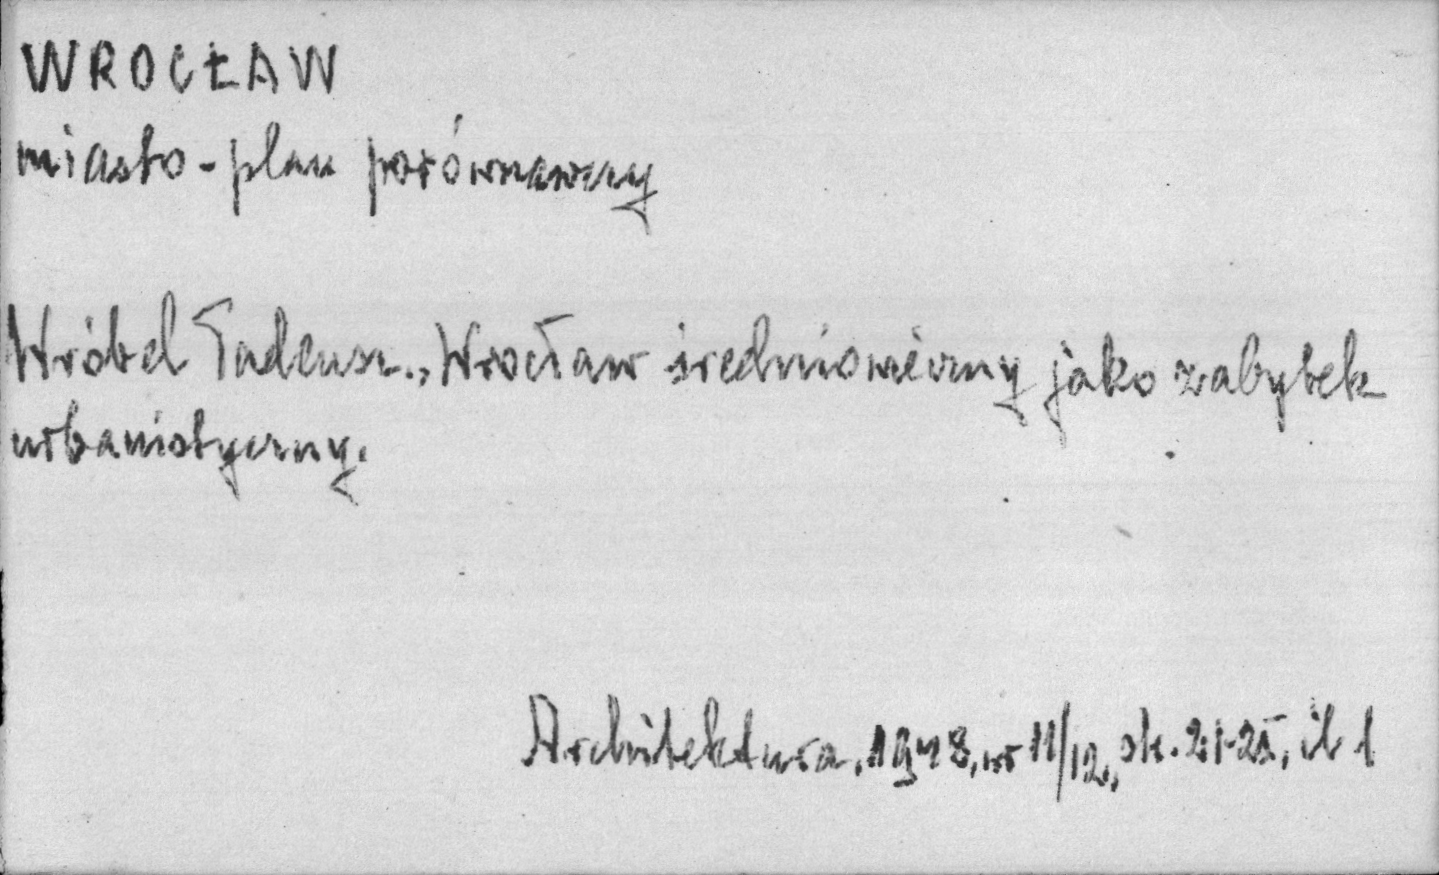 WROCŁAW
miasto - plan porównawczy
Wróbel Tadeusz., Wrocław średniowieczny jako zabytek
urbanistyczny.
Architektura, 1948, nr 11/12, str. 21-25, il 1